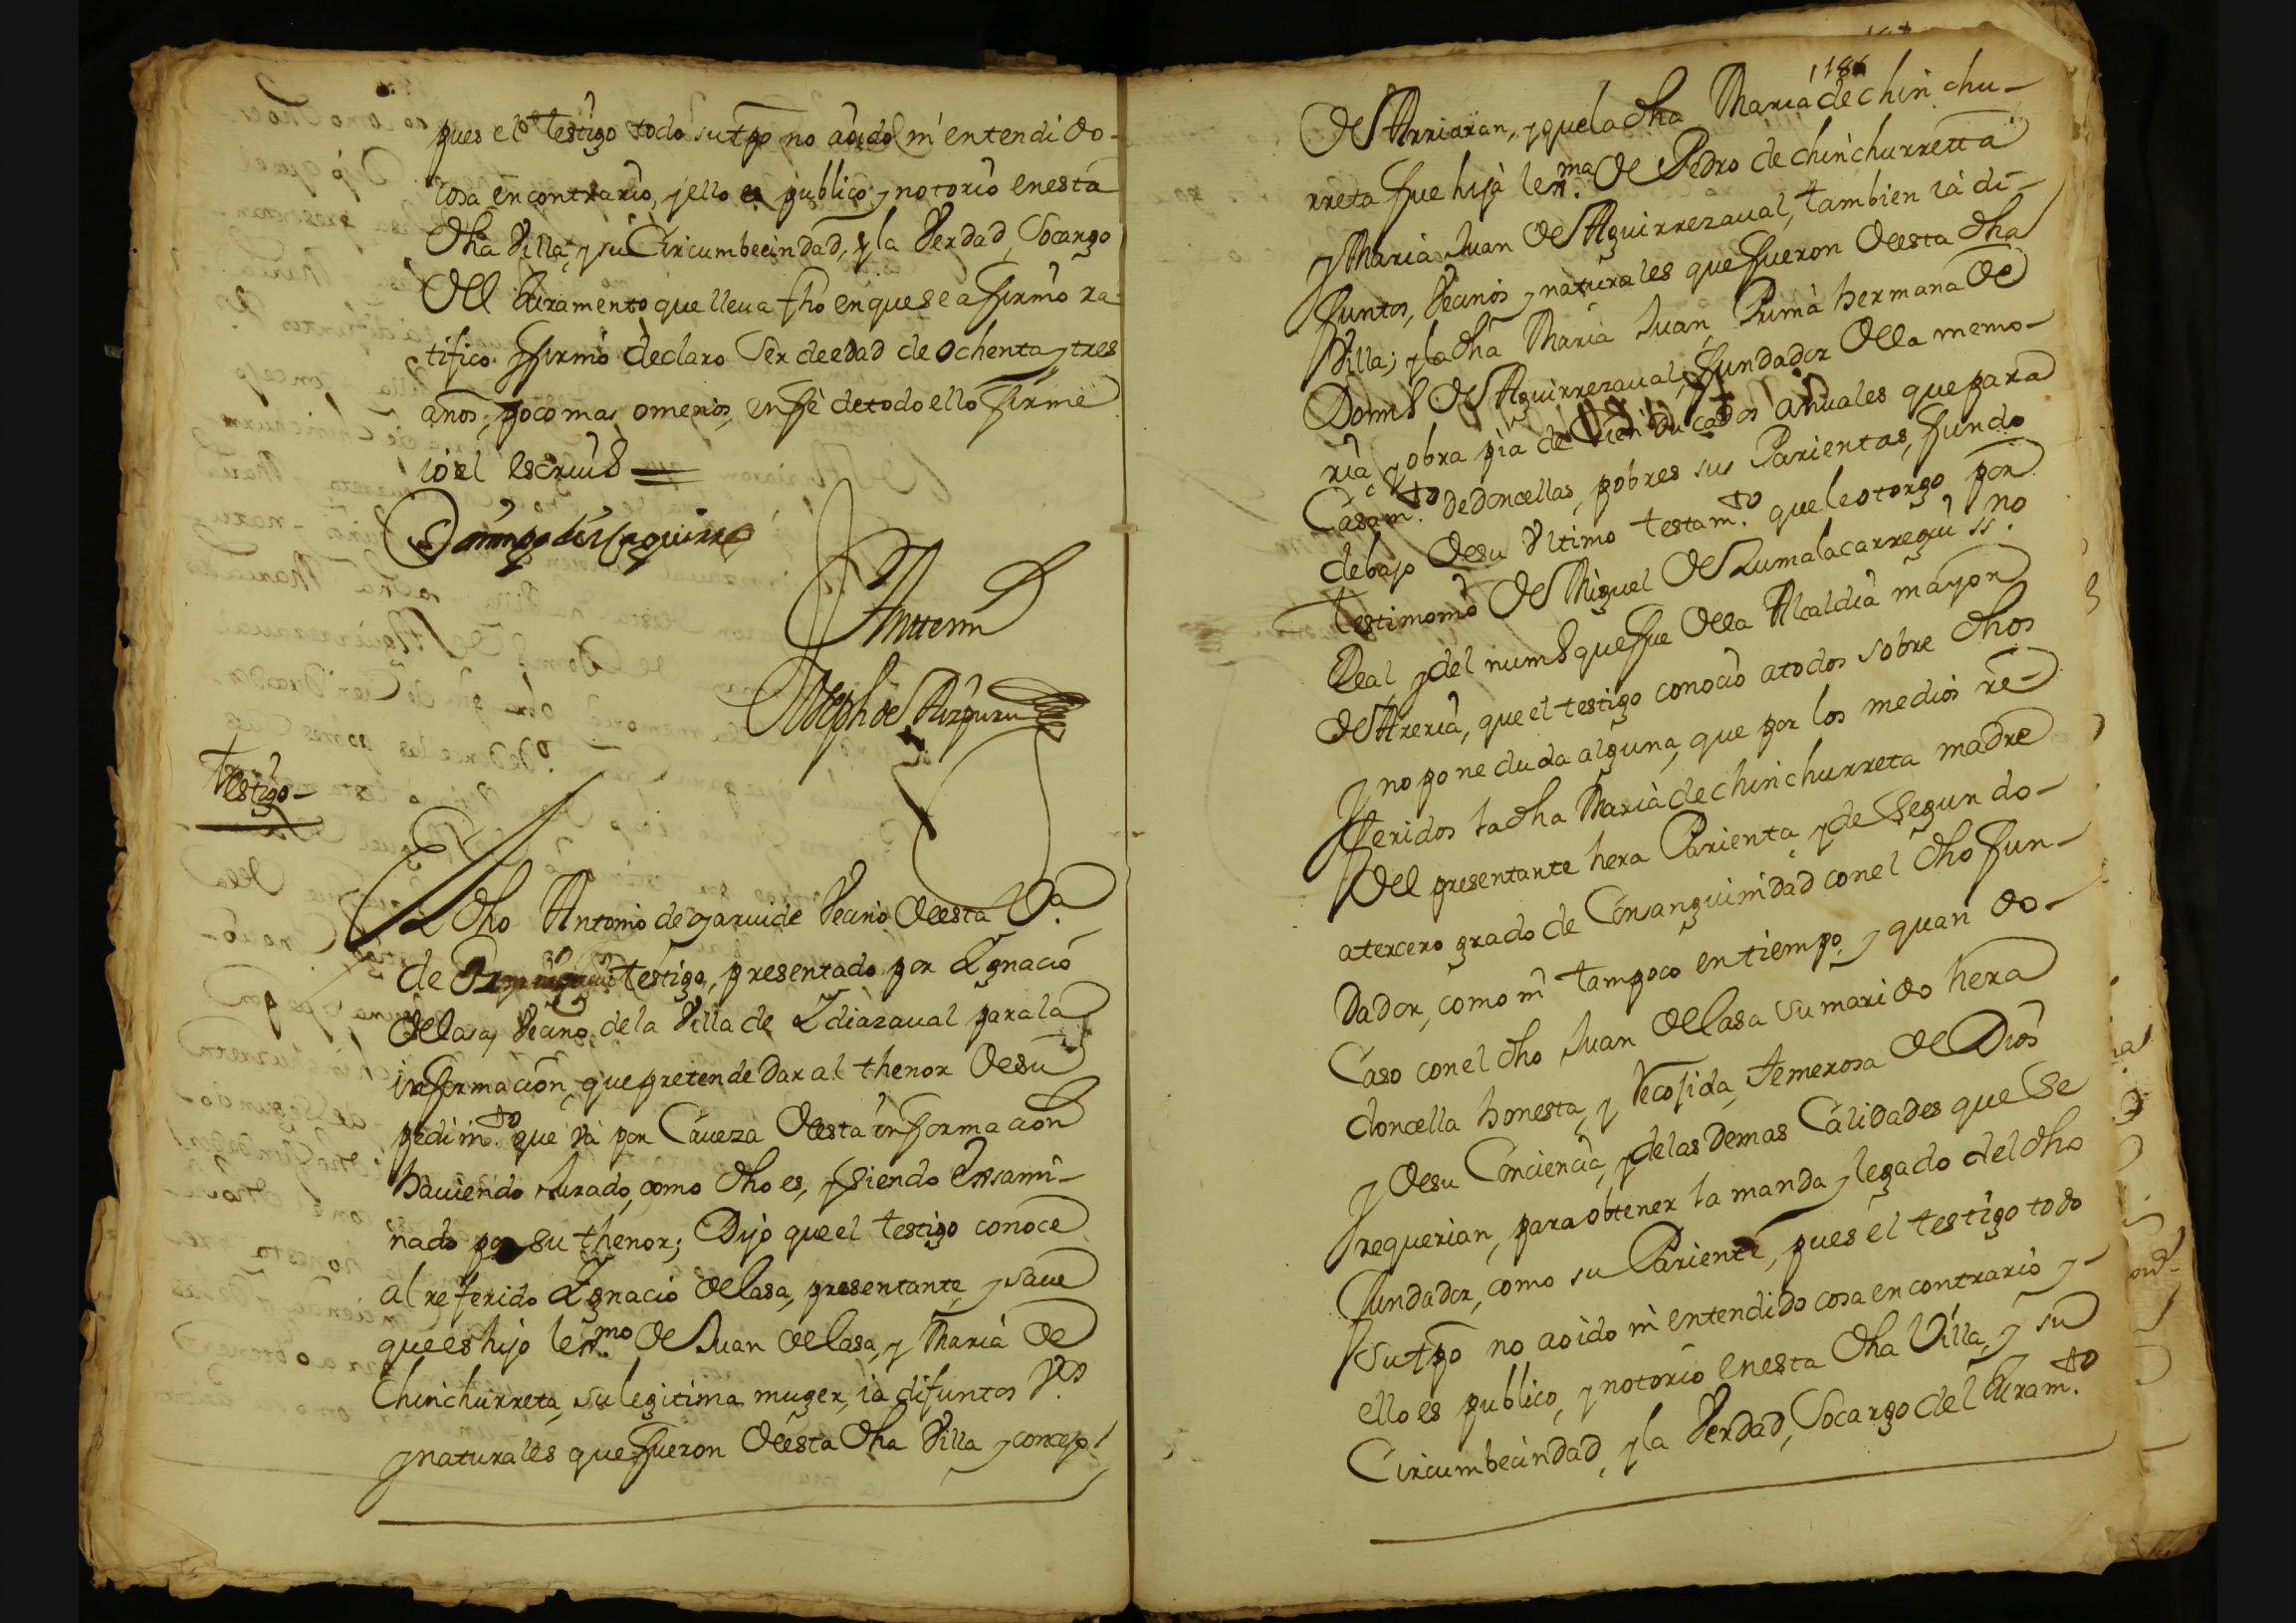 pues el testigo todo su tpo no a oido ni entendido
cosa en contrario, y ello es publico, y notorio en esta
dha Villa, y su Circumbecindad, y la Verdad, Socargo
del Juramento que lleua fho en que se afirmo ra-
tifico. y firmó declaro Ser de edad de ochenta, y tres
años, poco mas, omenos, en fé de todo ello firmé
ió el escriuº
Domingo de
Antemi
Joseph de Aizpuru
Testigo
El dho Antonio de garuide Vecino de esta Vª
de testigo, presentado por Ygnacio
de lasa, Vecino, de la Villa de Ydiazaual para la
informacion, que pretende Dar al thenor de su
pedimto que vá por Caueza de esta informacion
hauiendo Jurado, como dho es, y siendo Exsami-
nado por su thenor; Dijo que el testigo conoce
al referido Ygnacio de lasa, presentante, y saue
que es hijo lexmo de Juan de lasa, y Maria de
Chinchurreta, su legitima muger, ia difuntos Vos
y naturales que fueron de esta dha Villa y concejo
186
de Arriaran, y que la dha Maria de chinchu-
rreta fue hija lexma de Pedro de chinchurretta
y Maria Juan de Aguirrezaual, tambien iá di-
funtos, Vecinos y naturales que fueron de esta dha
Villa; y la dha Maria Juan, Prima hermana de
Domº de Aguirrezaual, fundador de la memo-
ria, y obra pia de Cien Ducados anuales que para
Casamto de doncellas, pobres sus Parientas, fundo
debajo de su Vltimo testamto que le otorgo por
testimonio de Miguel de Zumalacarregui ssno
Real y del numº que fue de la Alcaldia mayor
de Areria, que el testigo conocio a todos sobre dhos
y no pone duda alguna, que por los medios re-
feridos la dha Maria de chinchurreta madre
del presentante hera Parienta, y de Segundo
a tercero grado de Consanguinidad con el dho fun-
dador, como ni tampoco en tiempo, y quando
Caso con el dho Juan de lasa su marido hera
doncella honesta, y recojida, temerosa de Dios
y de su Conciencia, y de las Demas Calidades que Se
requerian, para obtener la manda, y legado del dho
fundador, como su Parienta, pues el testigo todo
su tpo no a oido ni entendido cosa en contrario y
ello es publico, y notorio en esta dha Villa, y su
Circumbecindad, y la Verdad, Socargo del Juramto